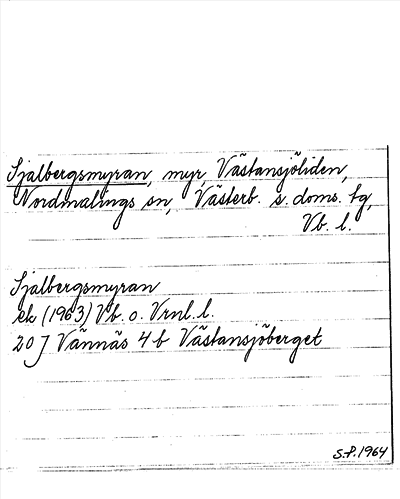 Sjalbergsmyran, myr, Västansjöliden,
Nordmalings sn, Västerb. s. doms. tg,
Vb. l.
Sjalbergsmyran
ek (1963) Vb. o. Vrnl. l.
20 J Vännäs 4 b Västansjöberget
S.P. 1964